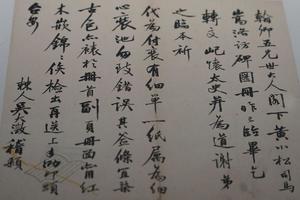 翰卿五兄世大人閣下黃小松司馬
嵩洛訪碑圖冊昨已臨畢乞
轉交屺懷太史并為道謝弟
也臨本祈
代為付裝有細單一紙屬為細
心裝池勿致錯誤其簽條宜染
古色亦裱於冊首副頁冊面用紅
木嵌錦俟檢出再送上手泐順頌
台安
棘人吳大澂稽顙